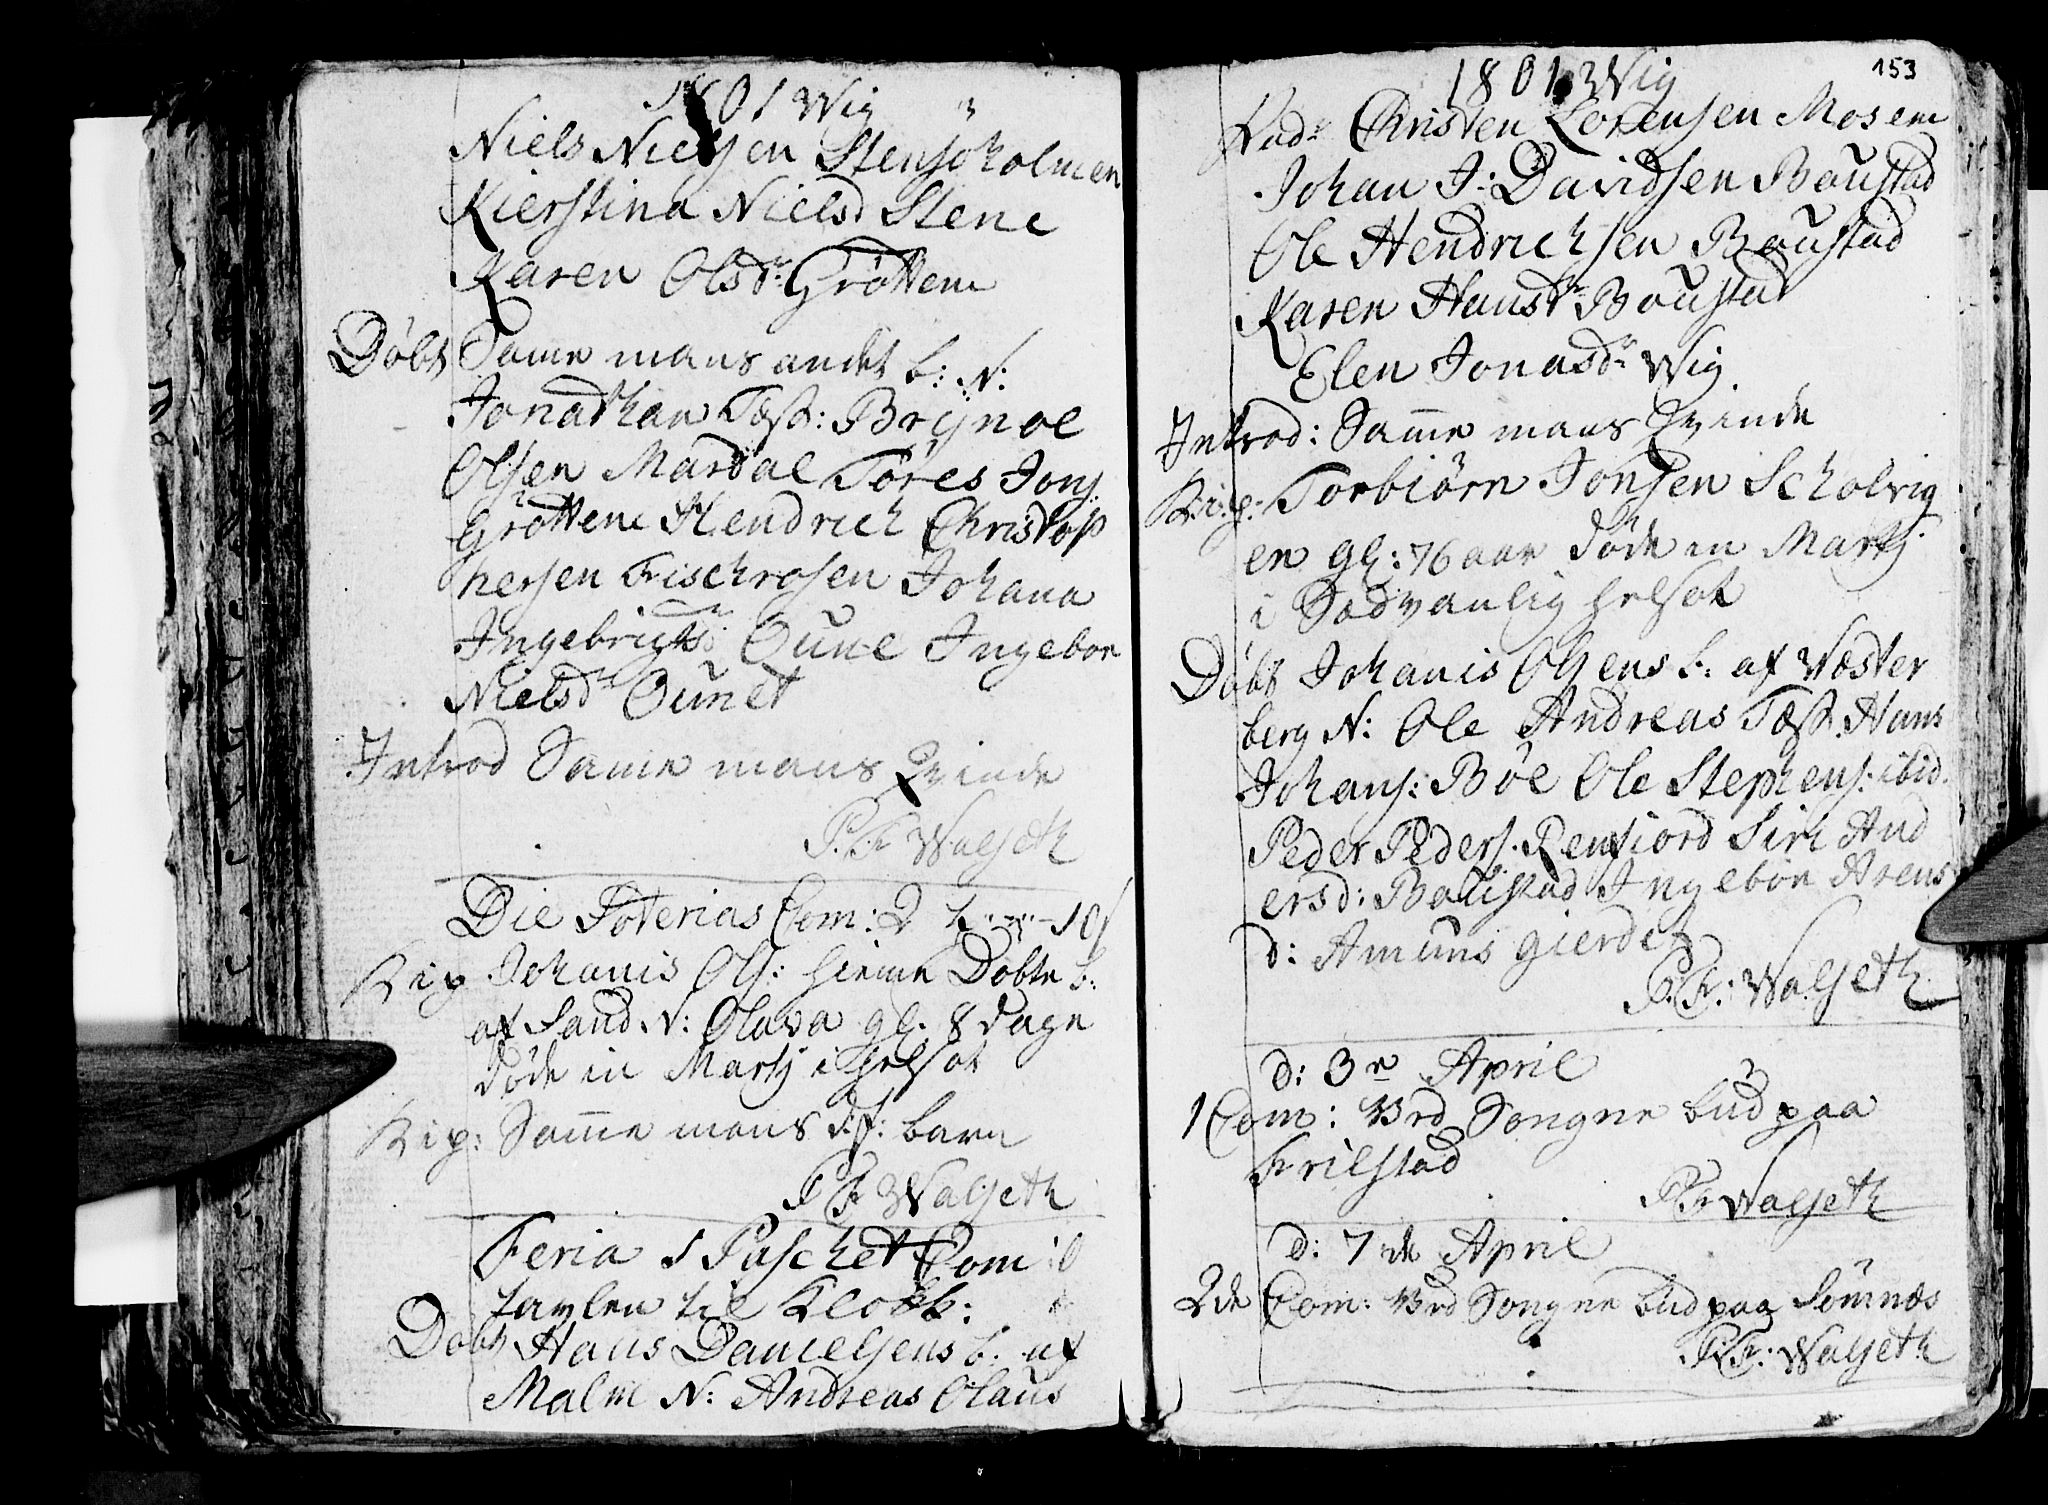 1801 Wig
Niels Nielsen Stensöholmen
Kierstina Nielsd Stene
Karen Olsdr Gröttem
Döbt Same mans andet b: N:
Jonathan Test: Brynel
Olsen Mardal Töres Jons:
Gröttem Hendrich Christop
hersen Fischrosen Johana
Ingebrigtsd: Oune Ingebor
Nielsdr Ounet
Introd Same mans Qvinde
P: Fr Walseth
Die Soterias Com: 2
Rip Johanis Ols: hieme Döbte b:
af Sand N: Olava gl. 8 dage
döde in Martj i helsot
Rip: Samme mans d.f: barn
P Fr Walseth
Feria 1 Paschet Com: 0
tavlen til Klokk:
Döbt Hans Danielsens b. af
Malm N: Andreas Olaus
153
1801 Wig
Fadr Christen Lorensen Mosem
Johan J: Davidsen Boustad
Ole Hendrichsen Boustad
Karen Hansdr Boustad
Elen Jonasdr Wig
Introd: Samme mans Qvinde
Rip: Torbiörn Jonsen Scholvig
en gl: 76 aar döde in Martj
i Sædvanlig helsot
Döbt Johanis Olsens b: af Wæster
berg N: Ole Andreas Test. Hans
Johans: Böe Ole Stephens. ibid.
Peder Peders. Renfiord Siri And
ersd: Boustad Ingebor Arens
d: Amuns gierdet
P. Fr: Walseth
d: 3e April
1 Com: Ved Songne bud paa
Frilstad
P Fr Walseth
d: 7de April
2de Com: Ved Songne bud paa Sömnæs
P Fr: Walseth